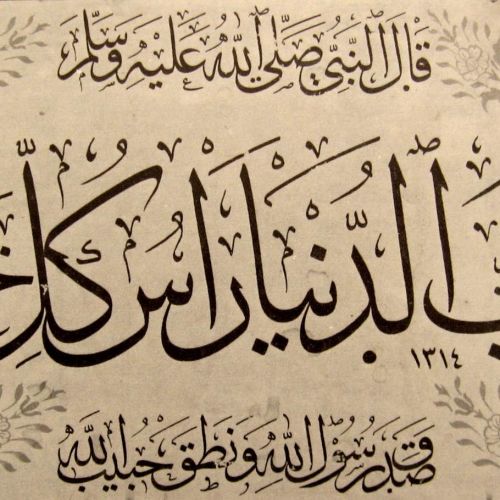 قَالَ النَّبِيُّ صَلَّى اللهُ عَلَيْهِ وَسَلَّم
بُّ الدُّنْيَا رَاْسُ كُلِّ خَ
١٣١٤
صَدَقَ رَسُولُ اللهِ وَنَطَقَ حَبِيبُ اللهِ